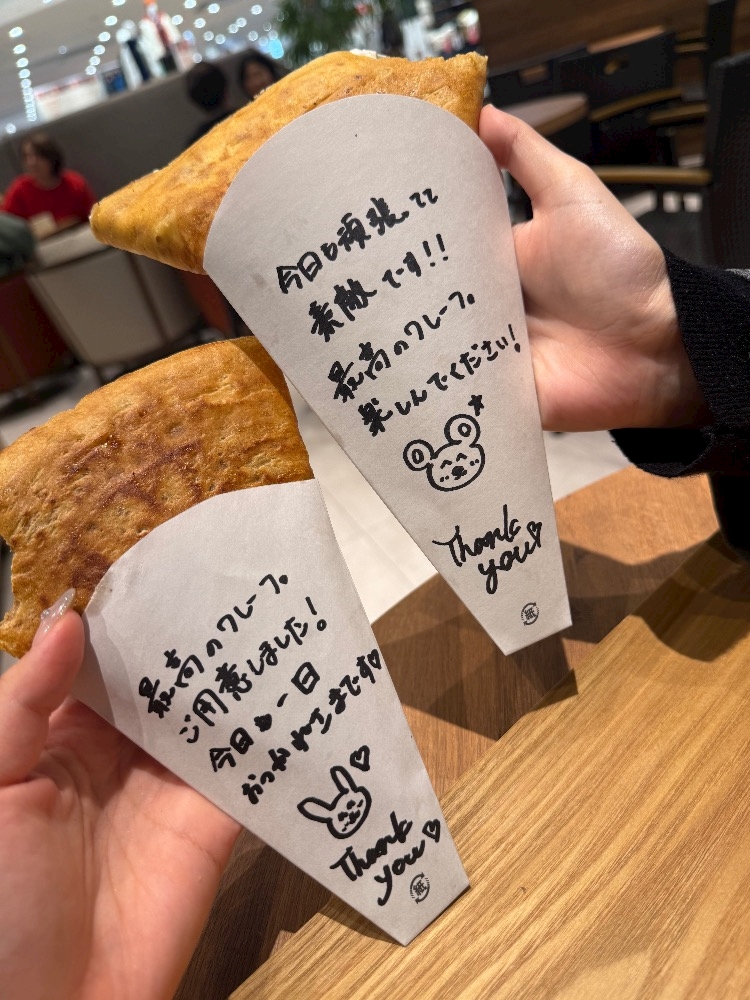 今日も頑張ってて
素敵です!!
最高のクレープ。
楽しんでください!
Thank
you
紙
最高のクレープ。
ご用意しました!
今日も一日
おつかれさまです
Thank
you
紙